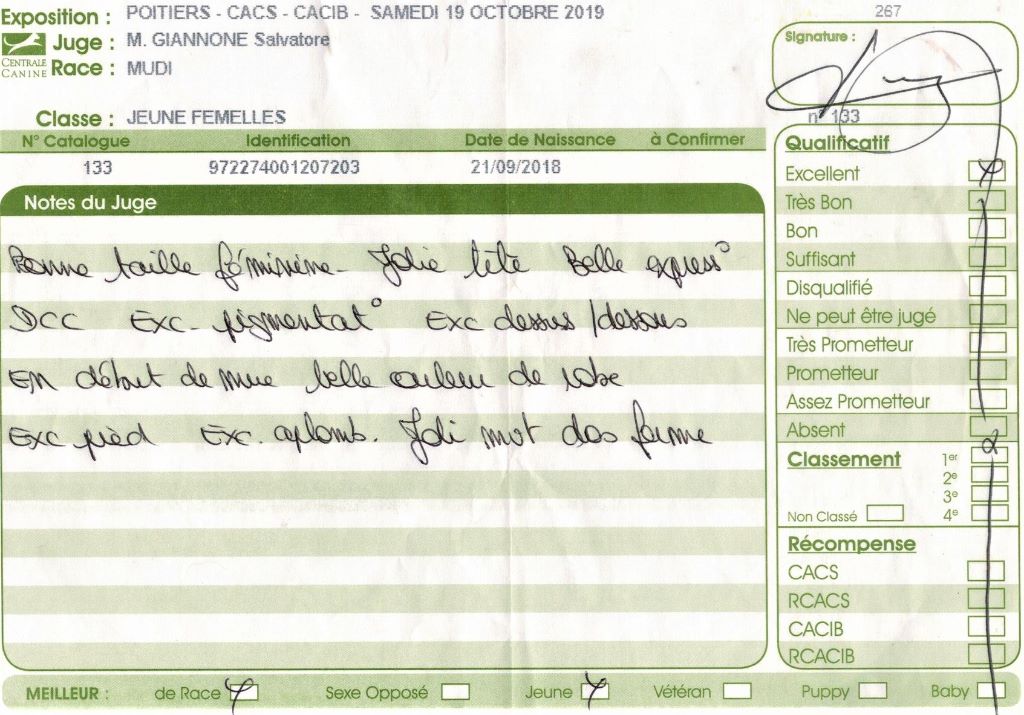 Exposition : POITIERS - CACS - CACIB - SAMEDI 19 OCTOBRE 2019
267
CENTRALE CANINE
Juge : M. GIANNONE Salvatore
Race : MUDI
Signature :
Classe : JEUNE FEMELLES
n° 133
N° Catalogue Identification Date de Naissance à Confirmer
133 972274001207203 21/09/2018
Notes du Juge
Bonne taille féminine - Jolie tête Belle express°
DCC Exc - pigmentat° Exc dessus / dessous
En début de mue belle couleur de robe
Exc pied Exc. aplomb. Joli mvt dos ferme
Qualificatif
Excellent
Très Bon
Bon
Suffisant
Disqualifié
Ne peut être jugé
Très Prometteur
Prometteur
Assez Prometteur
Absent
Classement 1er
2e
3e
Non Classé 4e
Récompense
CACS
RCACS
CACIB
RCACIB
MEILLEUR : de Race Sexe Opposé Jeune Vétéran Puppy Baby